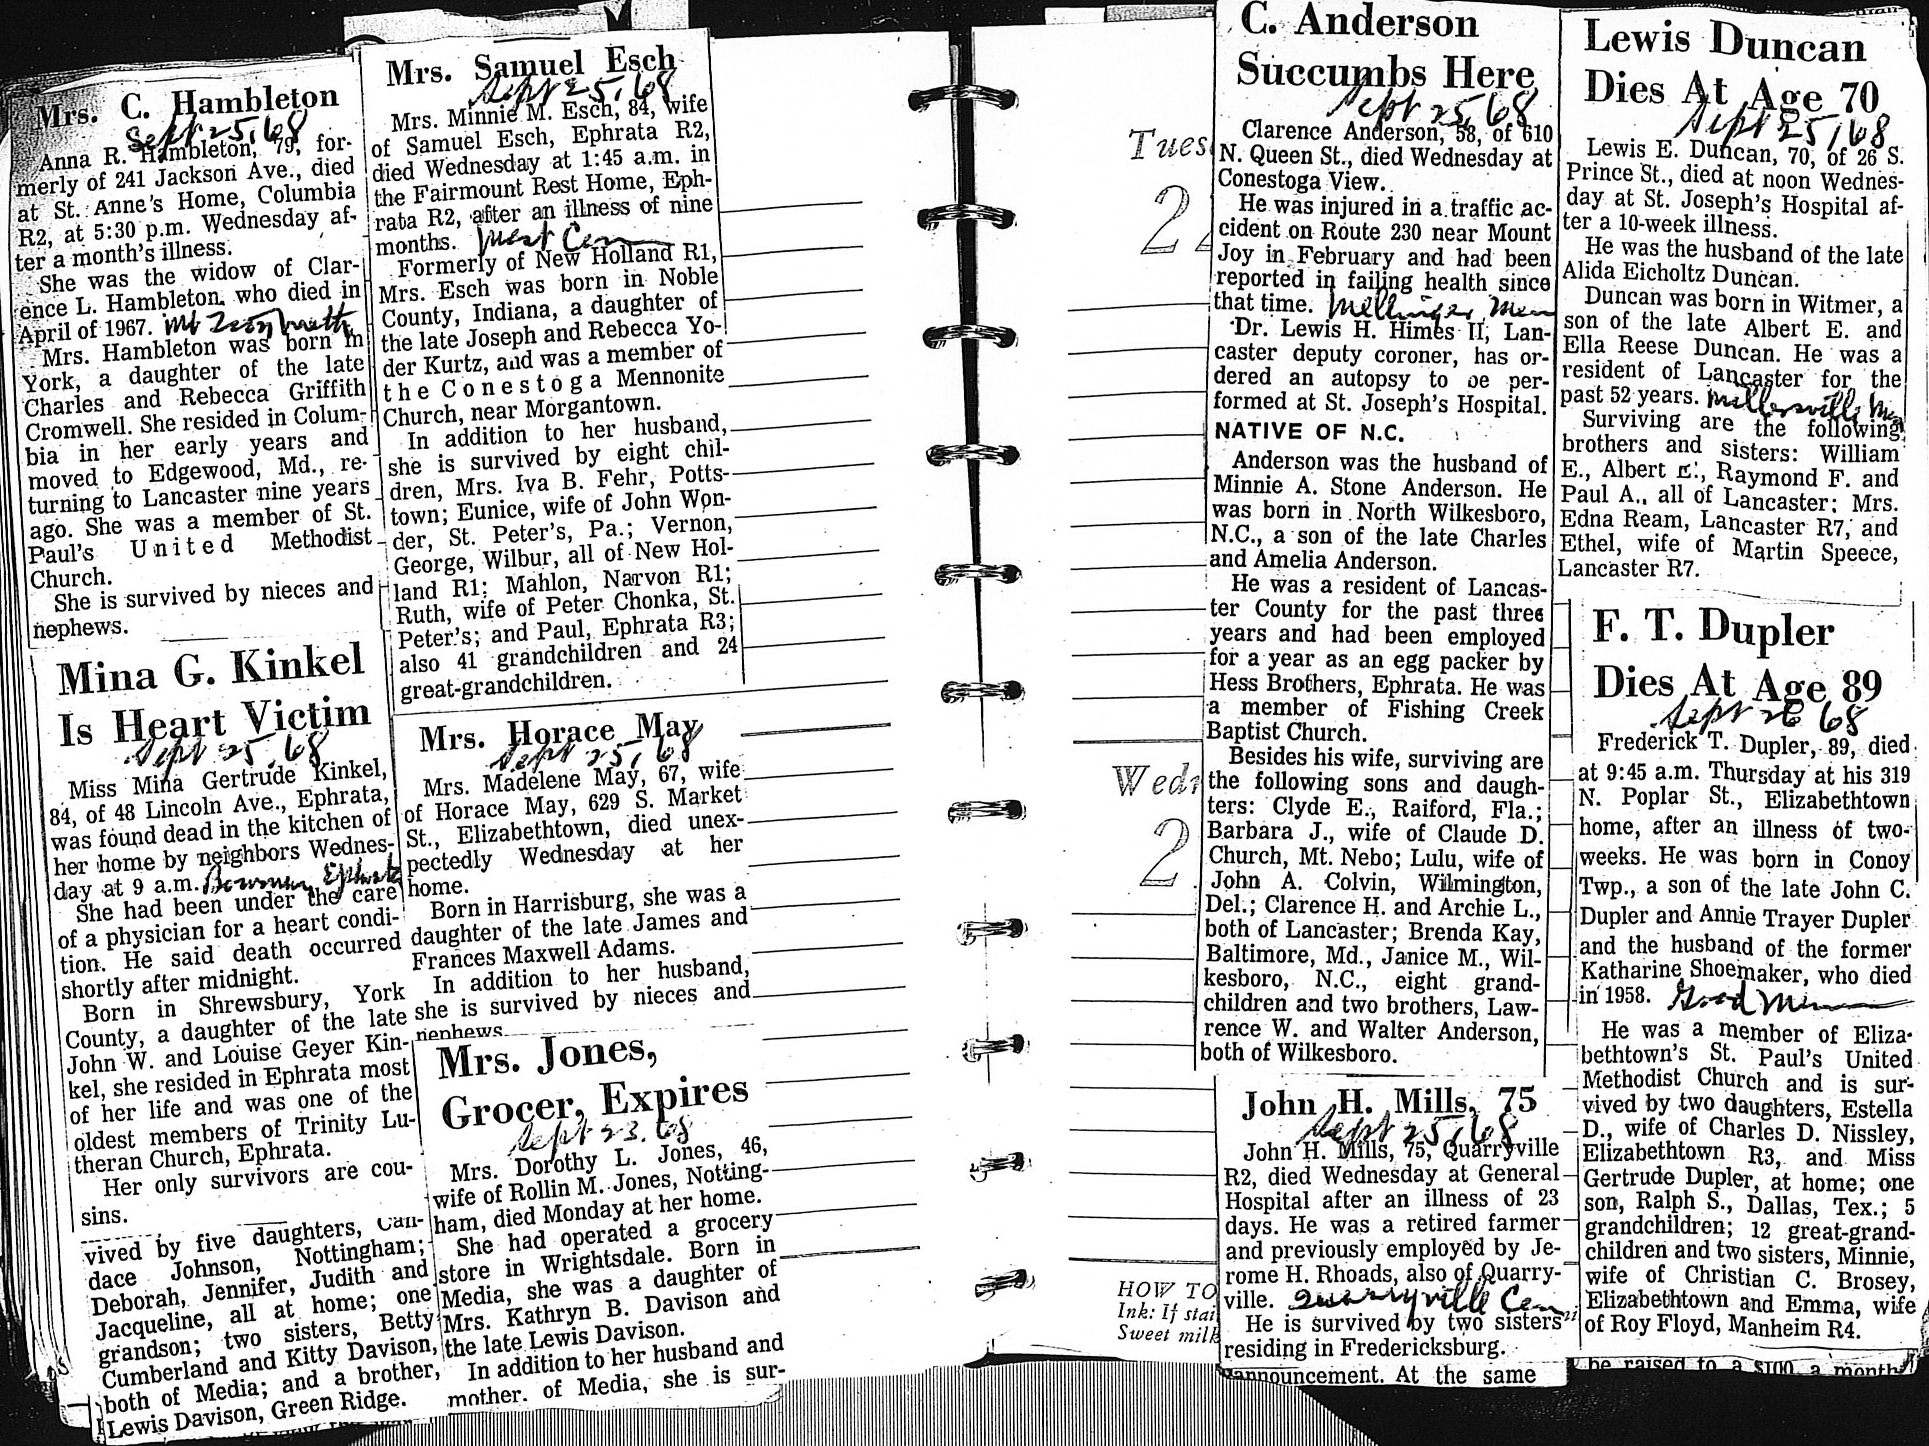 Mrs. C. Hambleton
Sept 25, 68
Anna R. Hambleton, 79, for-
merly of 241 Jackson Ave., died
at St. Anne's Home, Columbia
R2, at 5:30 p.m. Wednesday af-
ter a month's illness.
She was the widow of Clar-
ence L. Hambleton, who died in
April of 1967. Mt Zion
Mrs. Hambleton was born in
York, a daughter of the late
Charles and Rebecca Griffith
Cromwell. She resided in Colum-
bia in her early years and
moved to Edgewood, Md., re-
turning to Lancaster nine years
ago. She was a member of St.
Paul's United Methodist
Church.
She is survived by nieces and
nephews.
Mina G. Kinkel
Is Heart Victim
Sept 25, 68
Miss Mina Gertrude Kinkel,
84, of 48 Lincoln Ave., Ephrata,
was found dead in the kitchen of
her home by neighbors Wednes-
day at 9 a.m. Bowman, Ephrata
She had been under the care
of a physician for a heart condi-
tion. He said death occurred
shortly after midnight.
Born in Shrewsbury, York
County, a daughter of the late
John W. and Louise Geyer Kin-
kel, she resided in Ephrata most
of her life and was one of the
oldest members of Trinity Lu-
theran Church, Ephrata.
Her only survivors are cou-
sins.
vived by five daughters, Can-
dace Johnson, Nottingham;
Deborah, Jennifer, Judith and
Jacqueline, all at home; one
grandson; two sisters, Betty
Cumberland and Kitty Davison,
both of Media; and a brother,
Lewis Davison, Green Ridge.
Mrs. Samuel Esch
Sept 25, 68
Mrs. Minnie M. Esch, 84, wife
of Samuel Esch, Ephrata R2,
died Wednesday at 1:45 a.m. in
the Fairmount Rest Home, Eph-
rata R2, after an illness of nine
months. West Cem
Formerly of New Holland R1,
Mrs. Esch was born in Noble
County, Indiana, a daughter of
the late Joseph and Rebecca Yo-
der Kurtz, and was a member of
the Conestoga Mennonite
Church, near Morgantown.
In addition to her husband,
she is survived by eight chil-
dren, Mrs. Iva B. Fehr, Potts-
town; Eunice, wife of John Won-
der, St. Peter's, Pa.; Vernon,
George, Wilbur, all of New Hol-
land R1; Mahlon, Narvon R1;
Ruth, wife of Peter Chonka, St.
Peter's; and Paul, Ephrata R3;
also 41 grandchildren and 24
great-grandchildren.
Mrs. Horace May
Sept 25, 68
Mrs. Madelene May, 67, wife
of Horace May, 629 S. Market
St., Elizabethtown, died unex-
pectedly Wednesday at her
home.
Born in Harrisburg, she was a
daughter of the late James and
Frances Maxwell Adams.
In addition to her husband,
she is survived by nieces and
nephews.
Mrs. Jones,
Grocer, Expires
Sept 23, 68
Mrs. Dorothy L. Jones, 46,
wife of Rollin M. Jones, Notting-
ham, died Monday at her home.
She had operated a grocery
store in Wrightsdale. Born in
Media, she was a daughter of
Mrs. Kathryn B. Davison and
the late Lewis Davison.
In addition to her husband and
mother, of Media, she is sur-
Tues
2
Wedn
2
HOW TO
Ink: If stai
Sweet milk
C. Anderson
Succumbs Here
Sept 25, 68
Clarence Anderson, 58, of 610
N. Queen St., died Wednesday at
Conestoga View.
He was injured in a traffic ac-
cident on Route 230 near Mount
Joy in February and had been
reported in failing health since
that time. Mellinger Menn
Dr. Lewis H. Himes II, Lan-
caster deputy coroner, has or-
dered an autopsy to be per-
formed at St. Joseph's Hospital.
NATIVE OF N.C.
Anderson was the husband of
Minnie A. Stone Anderson. He
was born in North Wilkesboro,
N.C., a son of the late Charles
and Amelia Anderson.
He was a resident of Lancas-
ter County for the past three
years and had been employed
for a year as an egg packer by
Hess Brothers, Ephrata. He was
a member of Fishing Creek
Baptist Church.
Besides his wife, surviving are
the following sons and daugh-
ters: Clyde E., Raiford, Fla.;
Barbara J., wife of Claude D.
Church, Mt. Nebo; Lulu, wife of
John A. Colvin, Wilmington,
Del.; Clarence H. and Archie L.,
both of Lancaster; Brenda Kay,
Baltimore, Md., Janice M., Wil-
kesboro, N.C., eight grand-
children and two brothers, Law-
rence W. and Walter Anderson,
both of Wilkesboro.
John H. Mills, 75
Sept 25, 68
John H. Mills, 75, Quarryville
R2, died Wednesday at General
Hospital after an illness of 23
days. He was a retired farmer
and previously employed by Je-
rome H. Rhoads, also of Quarry-
ville. Quarryville Cem
He is survived by two sisters
residing in Fredericksburg.
announcement. At the same
Lewis Duncan
Dies At Age 70
Sept 25, 68
Lewis E. Duncan, 70, of 26 S.
Prince St., died at noon Wednes-
day at St. Joseph's Hospital af-
ter a 10-week illness.
He was the husband of the late
Alida Eicholtz Duncan.
Duncan was born in Witmer, a
son of the late Albert E. and
Ella Reese Duncan. He was a
resident of Lancaster for the
past 52 years. Millersville Men
Surviving are the following
brothers and sisters: William
E., Albert E., Raymond F. and
Paul A., all of Lancaster; Mrs.
Edna Ream, Lancaster R7, and
Ethel, wife of Martin Speece,
Lancaster R7.
F. T. Dupler
Dies At Age 89
Sept 26 68
Frederick T. Dupler, 89, died
at 9:45 a.m. Thursday at his 319
N. Poplar St., Elizabethtown
home, after an illness of two-
weeks. He was born in Conoy
Twp., a son of the late John C.
Dupler and Annie Trayer Dupler
and the husband of the former
Katharine Shoemaker, who died
in 1958. Good Menn
He was a member of Eliza-
bethtown's St. Paul's United
Methodist Church and is sur-
vived by two daughters, Estella
D., wife of Charles D. Nissley,
Elizabethtown R3, and Miss
Gertrude Dupler, at home; one
son, Ralph S., Dallas, Tex.; 5
grandchildren; 12 great-grand-
children and two sisters, Minnie,
wife of Christian C. Brosey,
Elizabethtown and Emma, wife
of Roy Floyd, Manheim R4.
be raised to a $100 a month